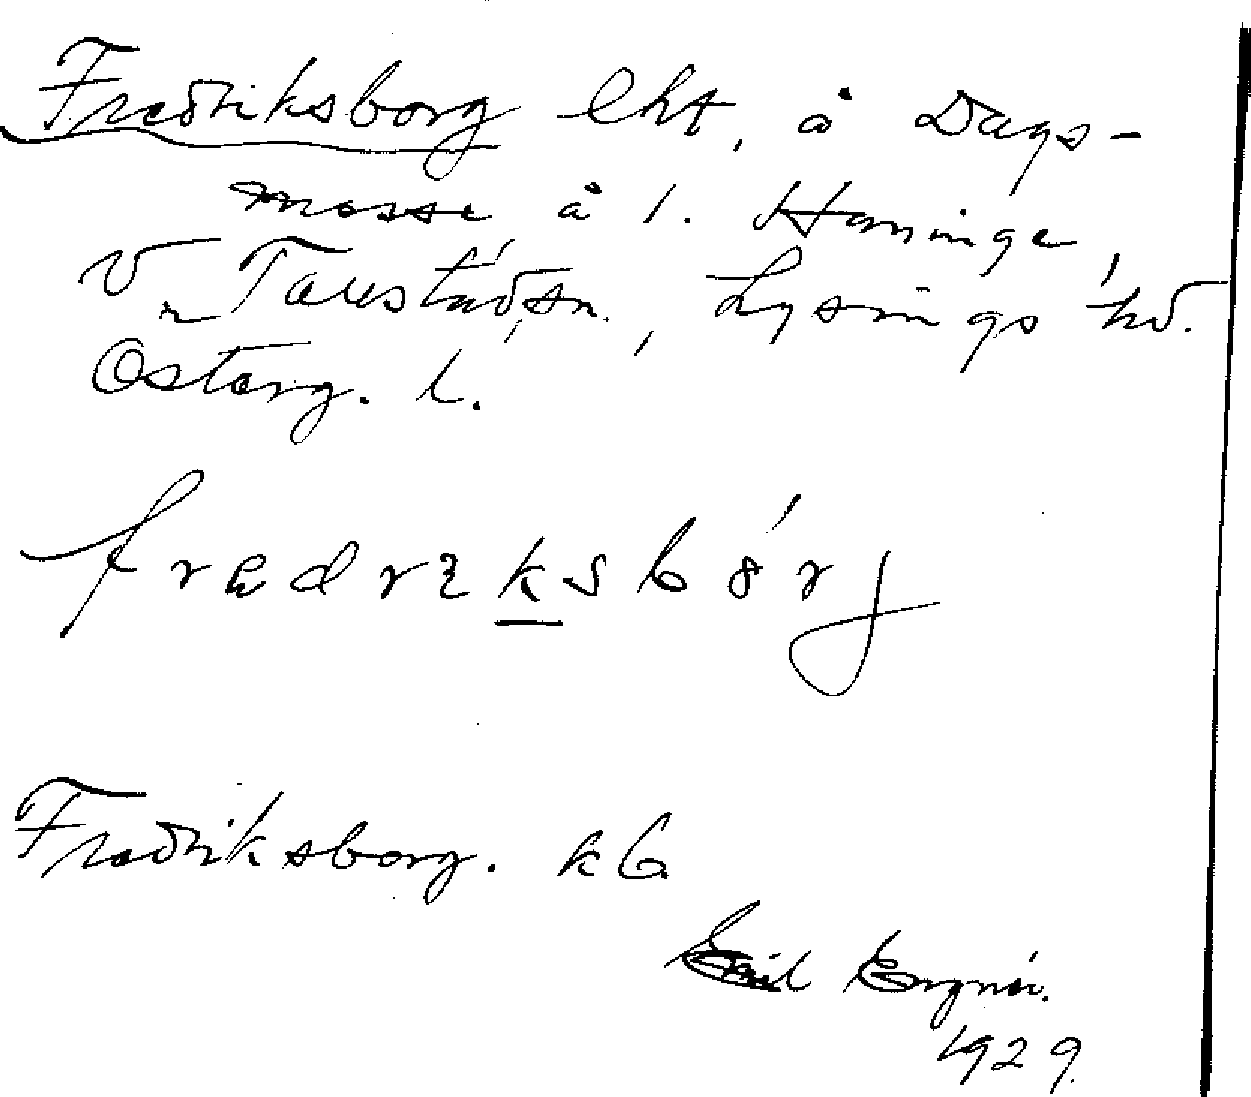 Fredriksborg lht, å Dags-
mosse å l. Haninge,
V. Tollstads sn., Lysings hd.
Österg. l.
fredrıksbórj
Fredriksborg. kb.
Emil Engnér.
1929.